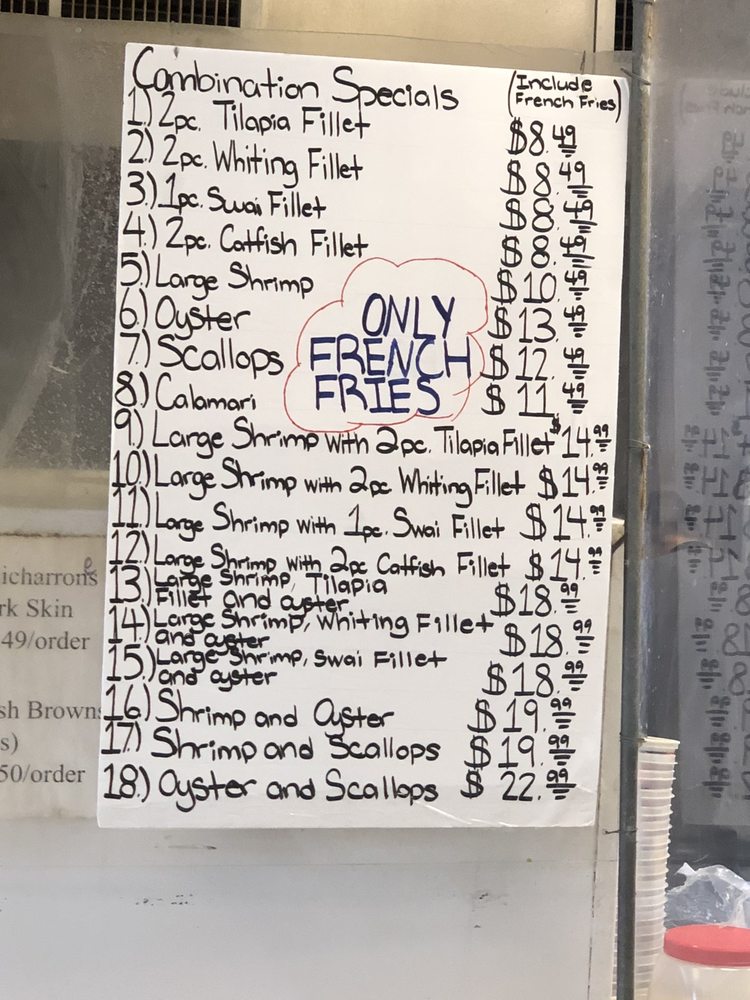 Combination Specials (Include French Fries)
1.) 2pc. Tilapia Fillet $8.49
2.) 2pc. Whiting Fillet $8.49
3.) 1pc. Swai Fillet $8.49
4.) 2pc. Catfish Fillet $8.49
5.) Large Shrimp $10.49
6.) Oyster $13.49
7.) Scallops $12.49
8.) Calamari $11.49
ONLY
FRENCH
FRIES
9.) Large Shrimp with 2pc. Tilapia Fillet $14.99
10.) Large Shrimp with 2pc Whiting Fillet $14.99
11.) Large Shrimp with 1pc. Swai Fillet $14.99
12.) Large Shrimp with 2pc Catfish Fillet $14.99
13.) Large Shrimp, Tilapia
Fillet and oyster $18.99
14.) Large Shrimp, Whiting Fillet
and oyster $18.99
15.) Large Shrimp, Swai Fillet
and oyster $18.99
16.) Shrimp and Oyster $19.99
17.) Shrimp and Scallops $19.99
18.) Oyster and Scallops $22.99
icharrone
rk Skin
49/order
sh Browns
s)
50/order